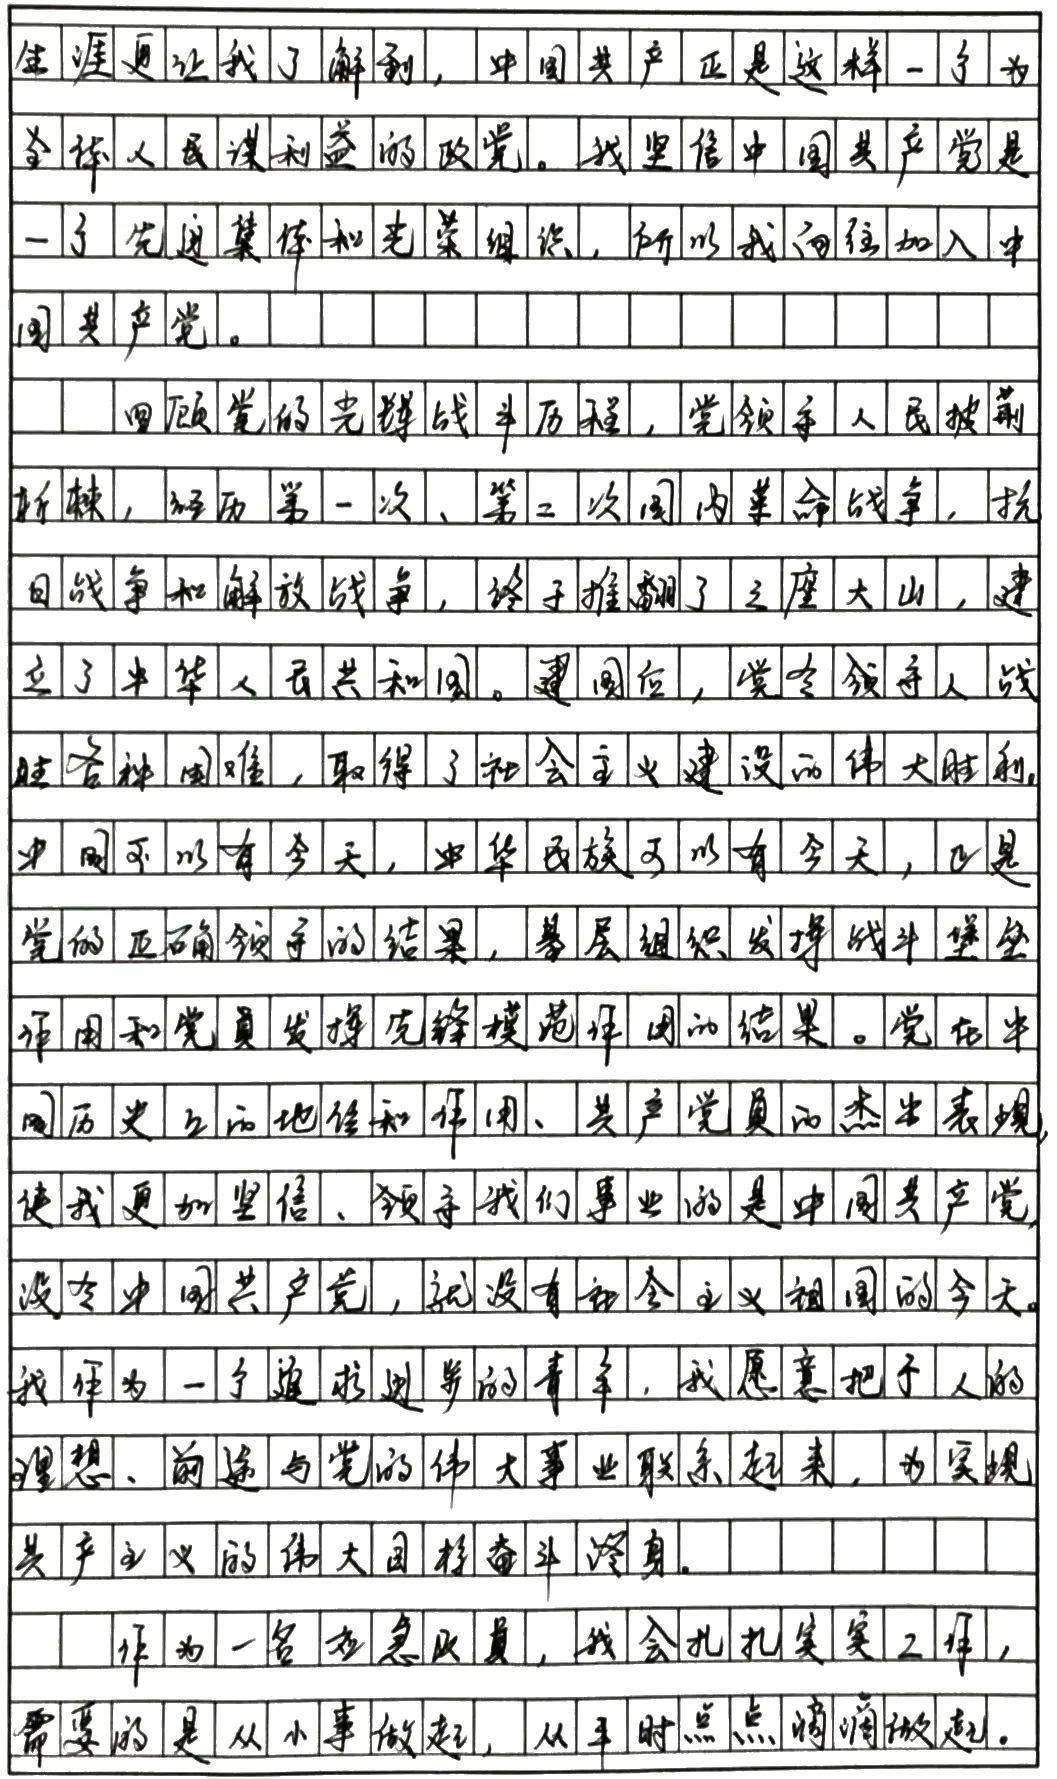 生涯更让我了解到，中国共产正是这样一个为
全体人民谋利益的政党。我坚信中国共产党是
一个先进集体和光荣组织，所以我向往加入中
国共产党。
回顾党的光辉战斗历程，党领导人民披荆
斩棘，经历第一次、第二次国内革命战争，抗
日战争和解放战争，终于推翻了三座大山，建
立了中华人民共和国。建国后，党又领导人战
胜各种困难，取得了社会主义建设的伟大胜利。
中国可以有今天，中华民族可以有今天，正是
党的正确领导的结果，基层组织发挥战斗堡垒
作用和党员发挥先锋模范作用的结果。党在中
国历史上的地位和作用、共产党员的杰出表现，
使我更加坚信、领导我们事业的是中国共产党，
没有中国共产党，就没有社会主义祖国的今天。
我作为一个追求进步的青年，我愿意把个人的
理想、前途与党的伟大事业联系起来，为实现
共产主义的伟大目标奋斗终身。
作为一名应急队员，我会扎扎实实工作，
需要的是从小事做起，从平时点点滴滴做起。